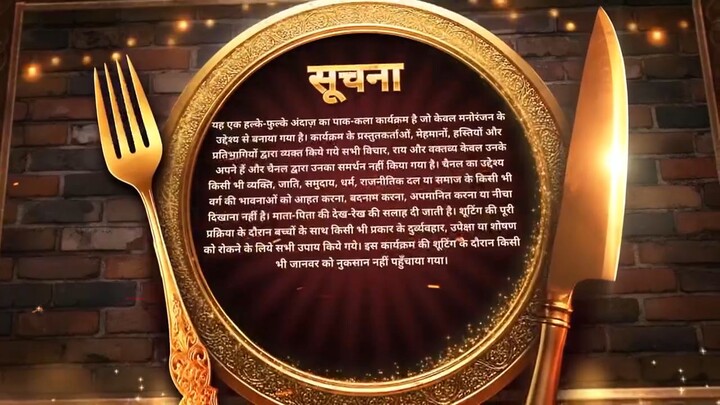 सूचना
यह एक हल्के-फुल्के अंदाज़ का पाक-कला कार्यक्रम है जो केवल मनोरंजन के
उद्देश्य से बनाया गया है। कार्यक्रम के प्रस्तुतकर्ताओं, मेहमानों, हस्तियों और
प्रतिभागियों द्वारा व्यक्त किये गये सभी विचार, राय और वक्तव्य केवल उनके
अपने हैं और चैनल द्वारा उनका समर्थन नहीं किया गया है। चैनल का उद्देश्य
किसी भी व्यक्ति, जाति, समुदाय, धर्म, राजनीतिक दल या समाज के किसी भी
वर्ग की भावनाओं को आहत करना, बदनाम करना, अपमानित करना या नीचा
दिखाना नहीं है। माता-पिता की देख-रेख की सलाह दी जाती है। शूटिंग की पूरी
प्रक्रिया के दौरान बच्चों के साथ किसी भी प्रकार के दुर्व्यवहार, उपेक्षा या शोषण
को रोकने के लिये सभी उपाय किये गये। इस कार्यक्रम की शूटिंग के दौरान किसी
भी जानवर को नुकसान नहीं पहुँचाया गया।